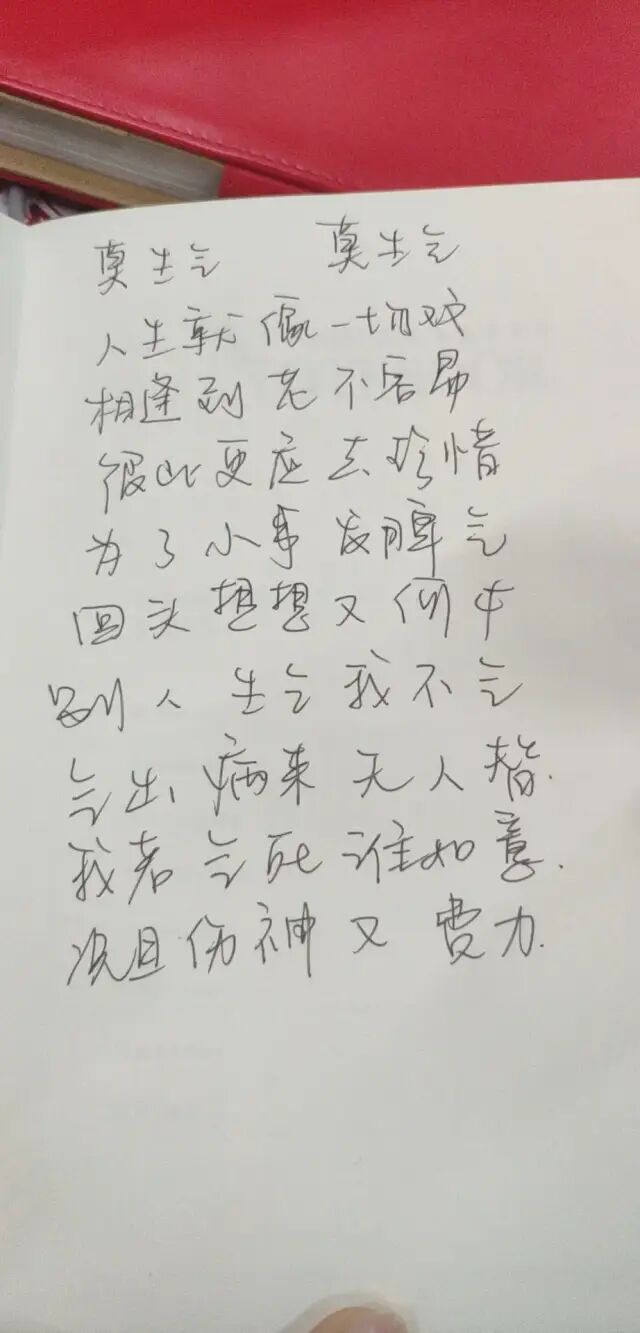 莫生气 莫生气
人生就像一切戏
相逢到老不容易
彼此更应去珍惜
为了小事发脾气
回头想想又何中
别人生气我不气
气出病来无人替.
我若气死谁如意.
况且伤神又费力.